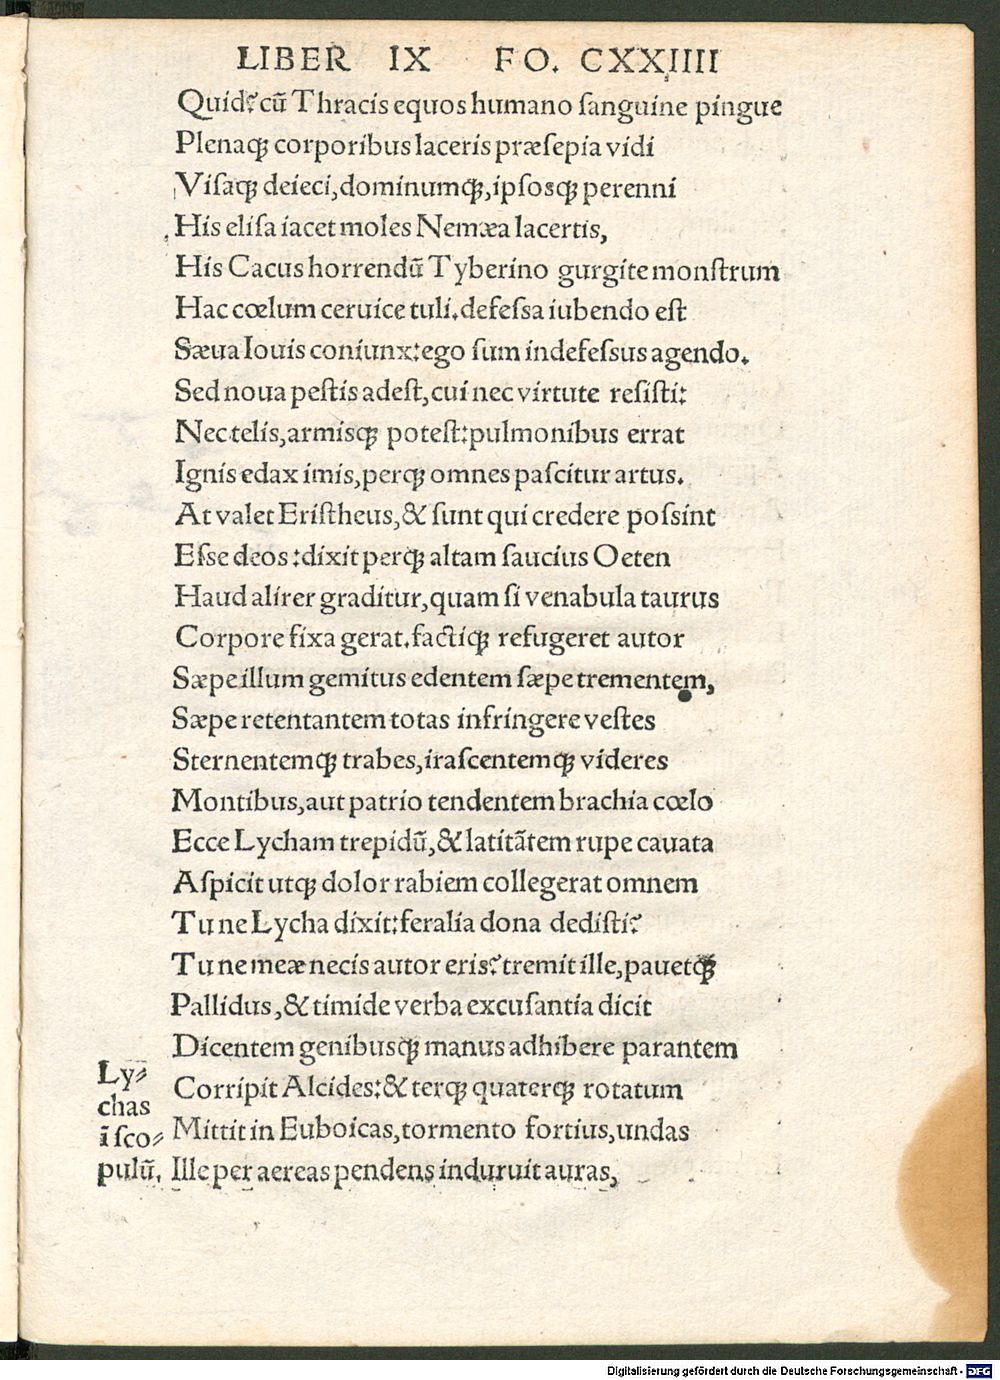 LIBER IX FO. CXXIIII
Quid? cũ Thracis equos humano ſanguine pingue
Plenaꝗ corporibus laceris præſepia vidi
Viſaꝗ deieci, dominumꝗ, ipſosꝗ perenni
His eliſa iacet moles Nemæa lacertis,
His Cacus horrendũ Tyberino gurgite monſtrum
Hac cœlum ceruice tuli. defeſſa iubendo eſt
Sæua Iouis coniunx: ego ſum indefeſſus agendo.
Sed noua peſtis adeſt, cui nec virtute reſiſti:
Nec telis, armisꝗ poteſt: pulmonibus errat
Ignis edax imis, perꝗ omnes paſcitur artus.
At valet Eriſtheus, & ſunt qui credere poſſint
Eſſe deos: dixit perꝗ altam ſaucius Oeten
Haud alirer graditur, quam ſi venabula taurus
Corpore fixa gerat. factiꝗ refugeret autor
Sæpe illum gemitus edentem ſæpe trementem,
Sæpe retentantem totas infringere veſtes
Sternentemꝗ trabes, iraſcentemꝗ videres
Montibus, aut patrio tendentem brachia cœlo
Ecce Lycham trepidũ, & latitãtem rupe cauata
Aſpicit utꝗ dolor rabiem collegerat omnem
Tu ne Lycha dixit: feralia dona dediſti?
Tu ne meæ necis autor eris? tremit ille, pauetꝗ
Pallidus, & timide verba excuſantia dicit
Dicentem genibusꝗ manus adhibere parantem
Corripit Alcides: & terꝗ quaterꝗ rotatum
Mittit in Euboicas, tormento fortius, undas
Ille per aereas pendens induruit auras,
Ly⸗
chas
ĩ ſco⸗
pulũ.
Digitalisierung gefördert durch die Deutsche Forschungsgemeinschaft - DFG